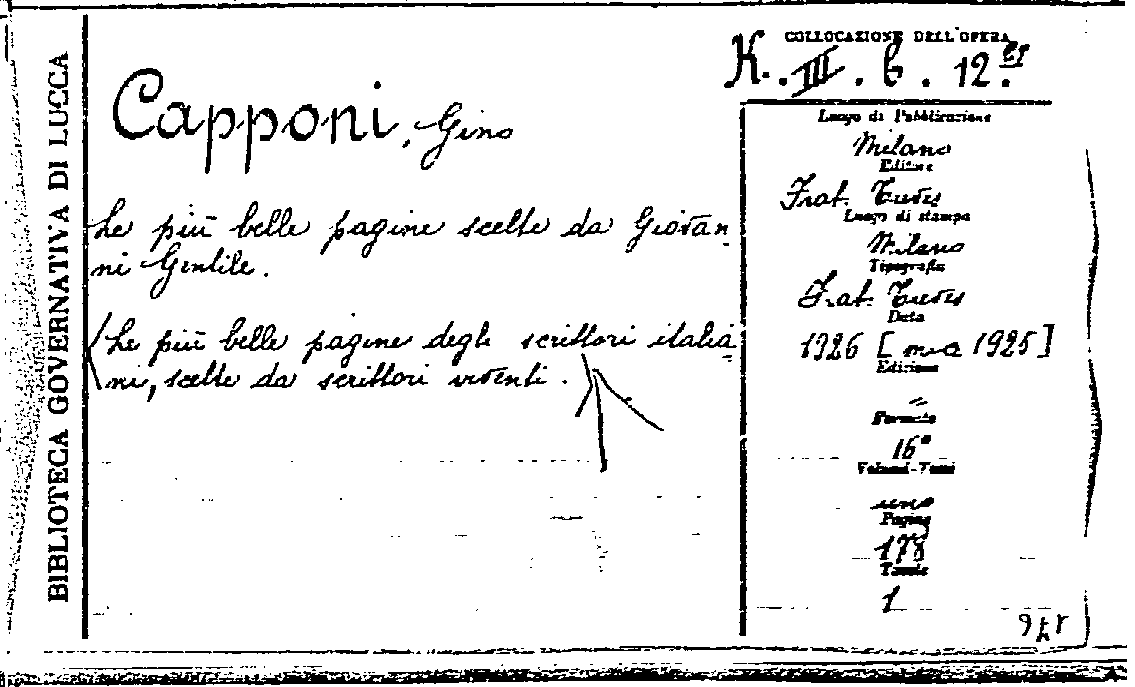 BIBLIOTECA GOVERNATIVA DI LUCCA
Capponi, Gino
Le più belle pagine scelte da Giovan
ni Gentile.
(Le più belle pagine degli scrittori italia
ni, scelte da scrittori viventi.
COLLOCAZIONE DELL'OPERA
K. III. b. 12.
Luogo di Pubblicazione
Milano
Editore
Frat. Treves
Luogo di stampa
Milano
Tipografia
Frat. Treves
Data
1926 [ma 1925]
Edizione
Formato
16°
Volumi-Tomi
uno
Pagine
178
Tavole
1